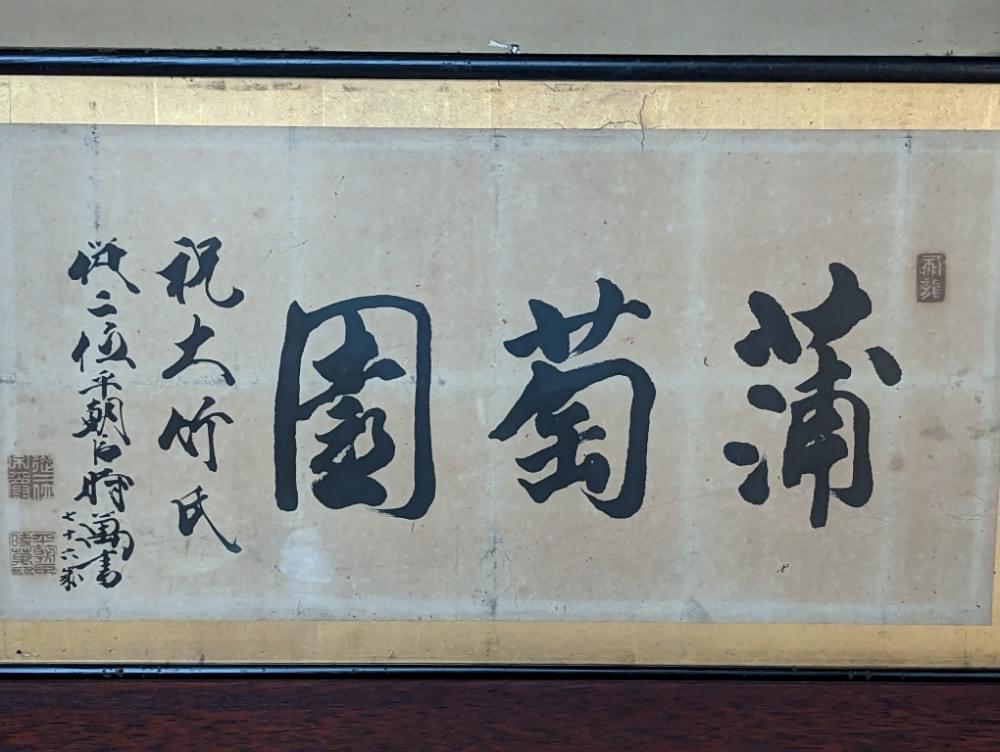 蒲萄園
祝大竹氏
従二位平朝臣時萬書
七十六